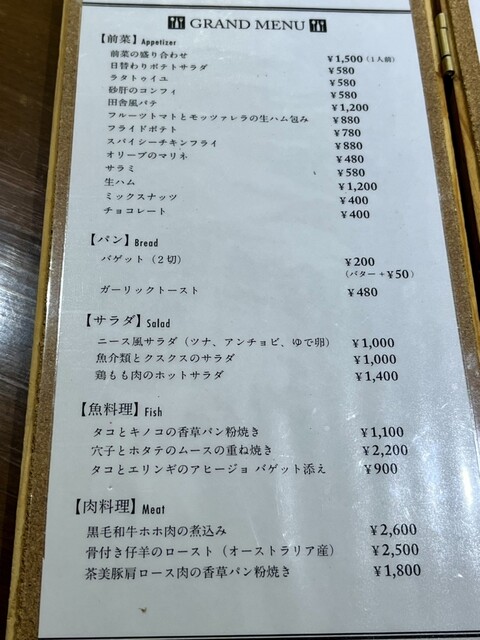 GRAND MENU
【前菜】Appetizer
前菜の盛り合わせ ¥1,500（1人前）
日替わりポテトサラダ ¥580
ラタトゥイユ ¥580
砂肝のコンフィ ¥580
田舎風パテ ¥1,200
フルーツトマトとモッツァレラの生ハム包み ¥880
フライドポテト ¥780
スパイシーチキンフライ ¥880
オリーブのマリネ ¥480
サラミ ¥580
生ハム ¥1,200
ミックスナッツ ¥400
チョコレート ¥400
【パン】Bread
バゲット（2切） ¥200
（バター+¥50）
ガーリックトースト ¥480
【サラダ】Salad
ニース風サラダ（ツナ、アンチョビ、ゆで卵） ¥1,000
魚介類とクスクスのサラダ ¥1,000
鶏もも肉のホットサラダ ¥1,400
【魚料理】Fish
タコとキノコの香草パン粉焼き ¥1,100
穴子とホタテのムースの重ね焼き ¥2,200
タコとエリンギのアヒージョ バゲット添え ¥900
【肉料理】Meat
黒毛和牛ホホ肉の煮込み ¥2,600
骨付き仔羊のロースト（オーストラリア産） ¥2,500
茶美豚肩ロース肉の香草パン粉焼き ¥1,800